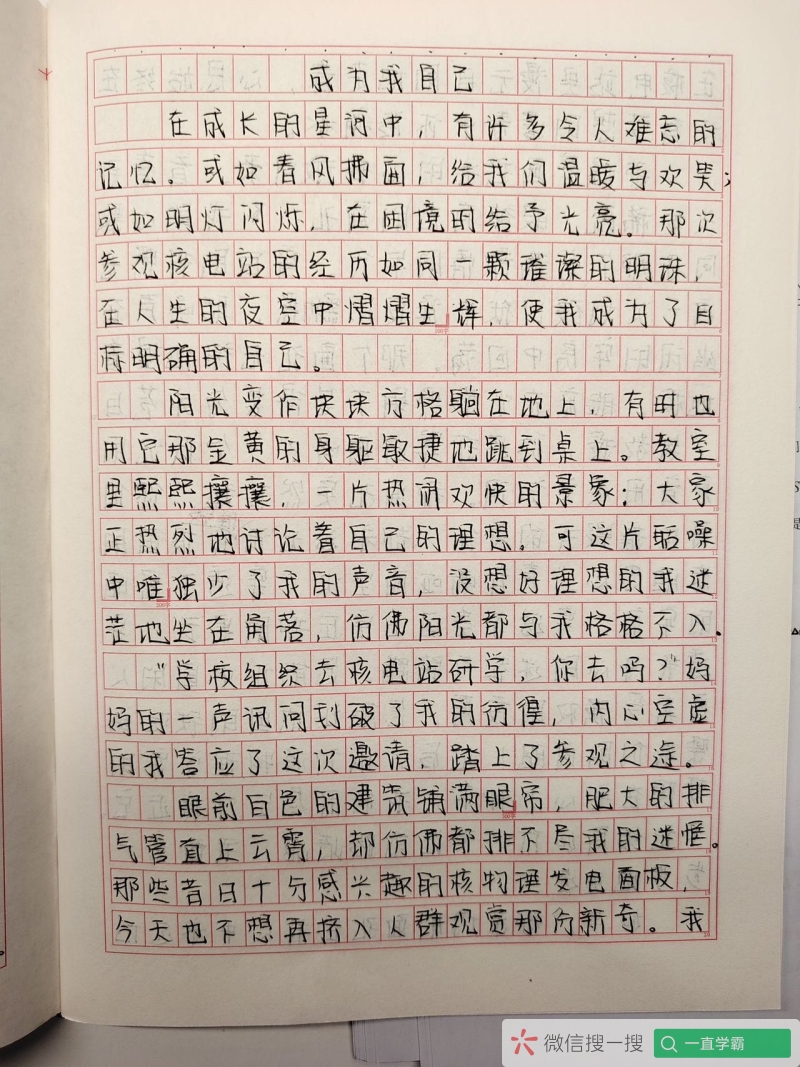 成为我自己
在成长的星河中，有许多令人难忘的
记忆。或如春风拂面，给我们温暖与欢笑；
或如明灯闪烁，在困境时给予光亮。那次
参观核电站的经历如同一颗璀璨的明珠，
在人生的夜空中熠熠生辉，使我成为了目
标明确的自己。
阳光变作块块方格躺在地上，有时也
用它那金黄的身躯敏捷地跳到桌上。教室
里熙熙攘攘，一片热闹欢快的景象；大家
正热烈地讨论着自己的理想。可这片聒噪
中唯独少了我的声音，没想好理想的我迷
茫地坐在角落，仿佛阳光都与我格格不入。
“学校组织去核电站研学，你去吗？”妈
妈的一声讯问划破了我的彷徨，内心空虚
的我答应了这次邀请，踏上了参观之途。
眼前白色的建筑铺满眼帘，肥大的排
气管直上云霄，却仿佛都排不尽我的迷惘。
那些昔日十分感兴趣的核物理发电面板，
今天也不想再挤入人群观赏那份新奇。我
微信搜一搜
一直学霸